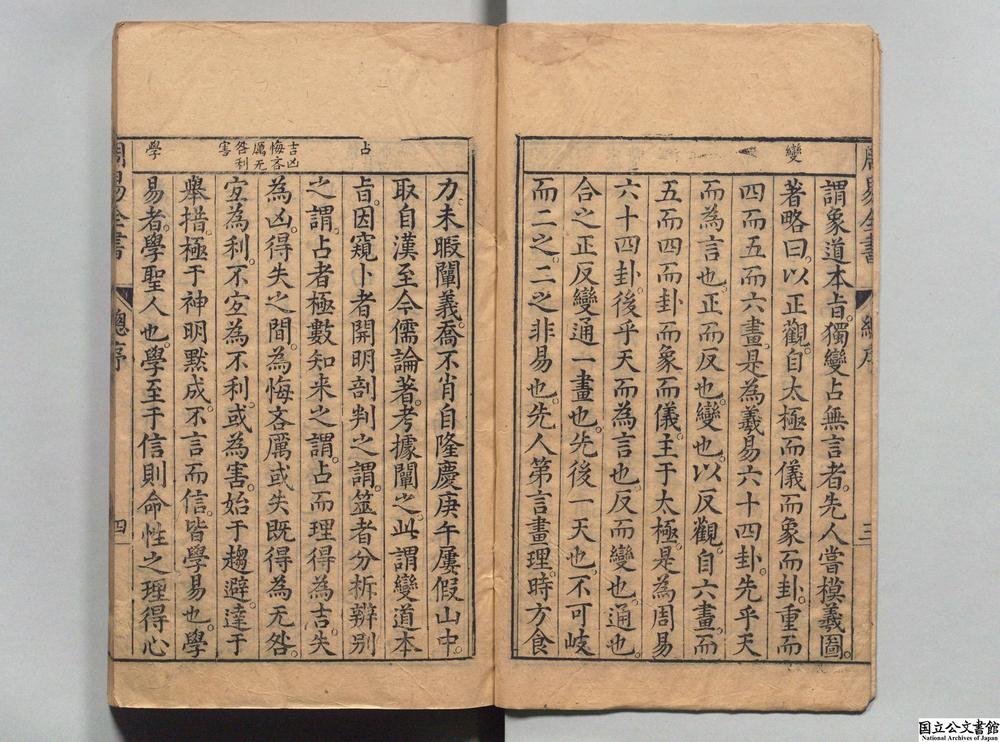 周易全書
總序
三
變
謂象道本旨。獨變占無言者。先人嘗模義圖。
著略曰。以正觀。自太極而儀而象而卦。重而
四而五而六畫。是為羲易六十四卦。先乎天
而為言也。正而反也。變也。以反觀。自六畫。而
五而四而卦而象而儀。主于太極。是為周易
六十四卦。後乎天而為言也。反而變也。通也。
合之正反變通一畫也。先後一天也。不可岐
而二之。二之非易也。先人第言畫理。時方食
占
吉凶
悔吝
厲无
咎利
害
學
力未暇闡義。喬不肖自隆慶庚午屢假山中。
取自漢至今儒論著。考據闡之。此謂變道本
旨。因窺卜者開明剖判之謂。筮者分析辨別
之謂。占者極數知来之謂。占而理得為吉。失
為凶。得失之間。為悔吝厲。或失既得為无咎。
宜為利。不宜為不利。或為害。始于趨避。達于
舉措。極于神明默成。不言而信。皆學易也。學
易者。學聖人也。學至于信則命性之理得心
周易全書
總序
四
国立公文書館
National Archives of Japan